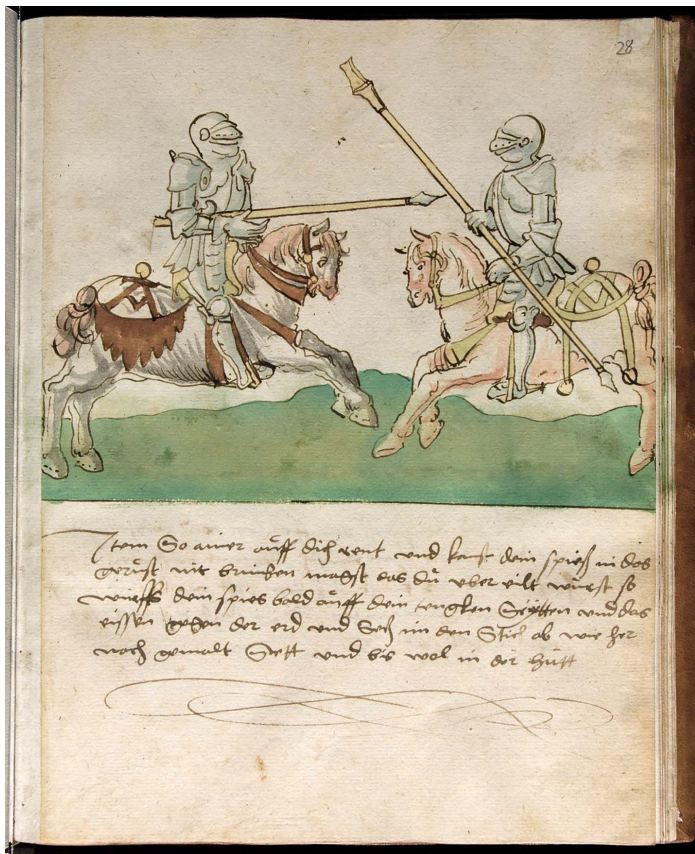 28
Item So ainer auff dich rent und kanst dein spieß in das
gerüst nit bringen magst das du uber eilt würst so
würffs dein spies bald auff dein tengken Seÿtten und das
eissen gegen der erd und Setz im den Stich ab wie her
nach gemalt Stett und bis wol in der hütt